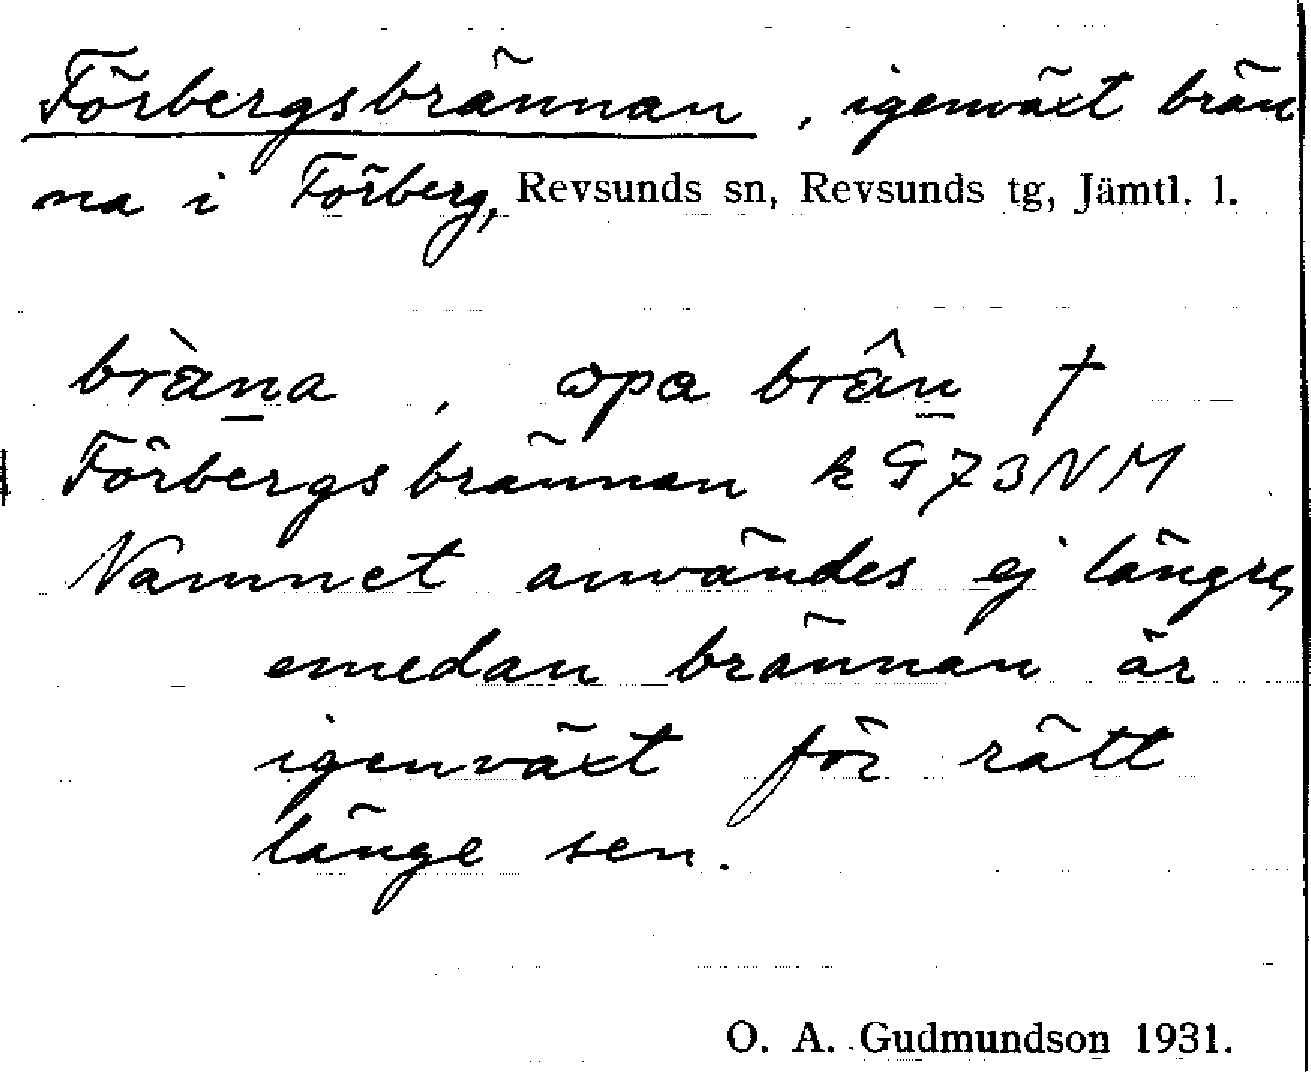 Förbergsbrännan, igenväxt brän
na i Förberg, Revsunds sn, Revsunds tg, Jämtl. l.
bràn̲a, ɔpa brân̲ †
Förbergsbrännan k G73NM
Namnet användes ej längre,
emedan brännan är
igenväxt för rätt
länge sen.
O. A. Gudmundson 1931.